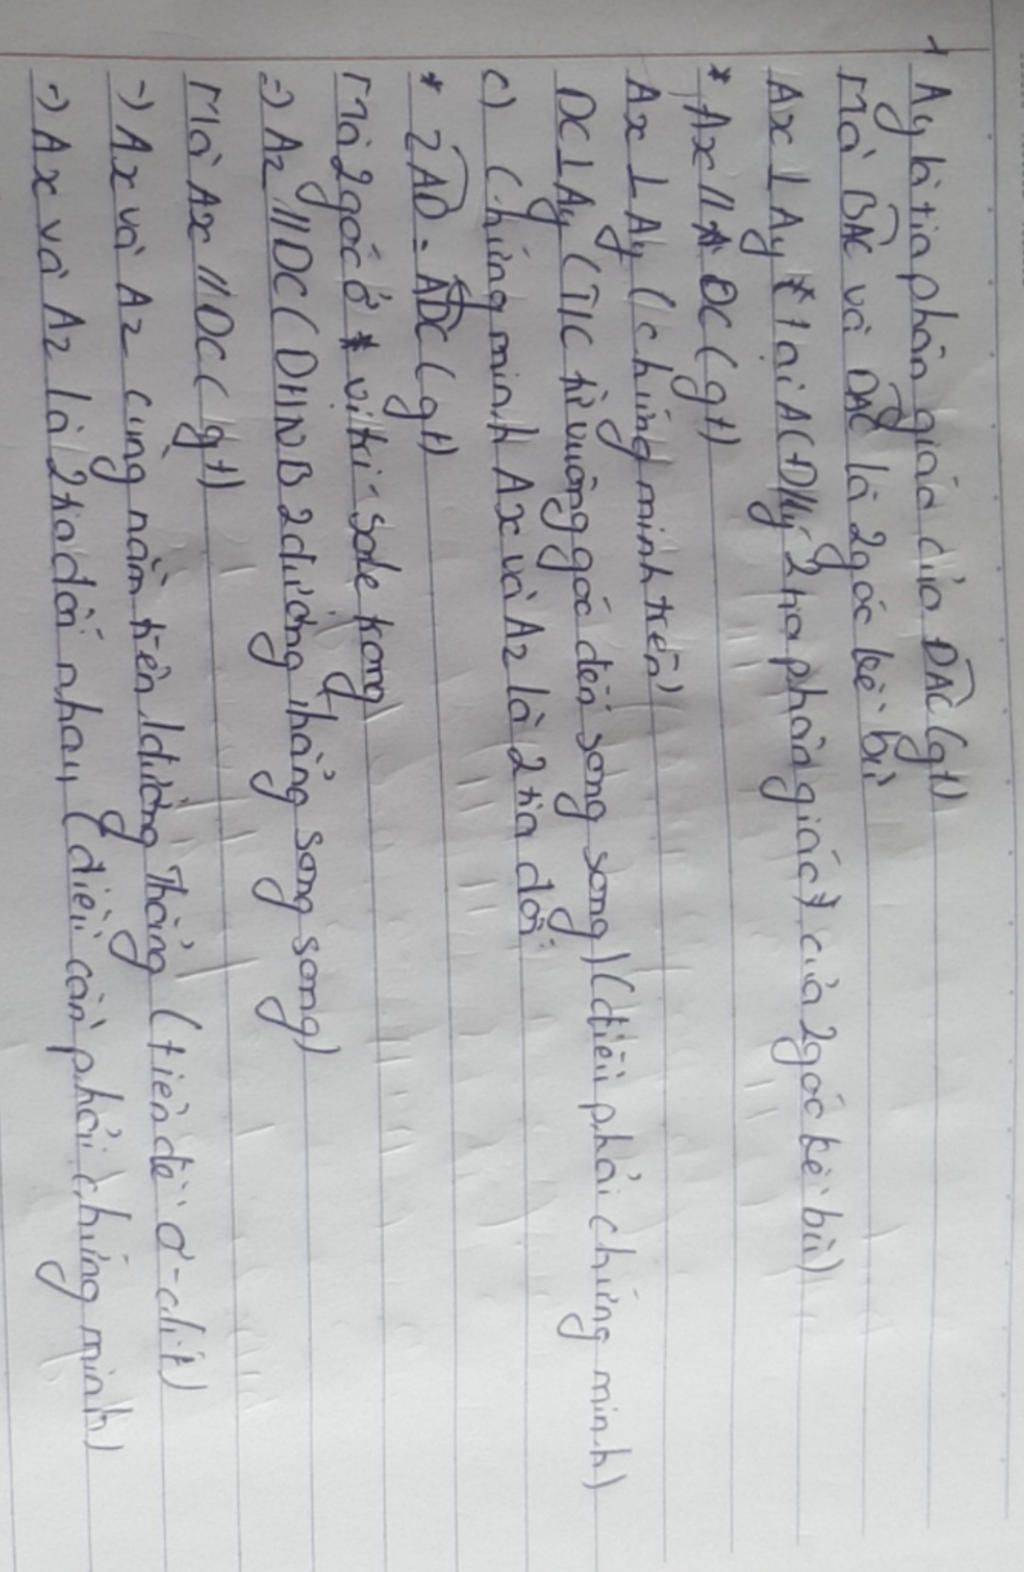 + Ay là tia phân giác của DAC (gt)
Mà BAC và DAC là 2 góc kề bù
Ax ⊥ Ay tại A (Đlý 2 tia phân giác của 2 góc kề bù)
* Ax // DC (gt)
Ax ⊥ Ay (chứng minh trên)
DC ⊥ Ay (T/C từ vuông góc đến song song) (điều phải chứng minh)
c) Chứng minh Ax và Az là 2 tia đối:
* zAD = ADC (gt)
Mà 2 góc ở vị trí sole trong
=) Az // DC (DHNB 2 đường thẳng song song)
Mà Ax // DC (gt)
=) Ax và Az cùng nằm trên 1 đường thẳng (tiên đề Ơ-clit)
=) Ax và Az là 2 tia đối nhau (điều cần phải chứng minh)